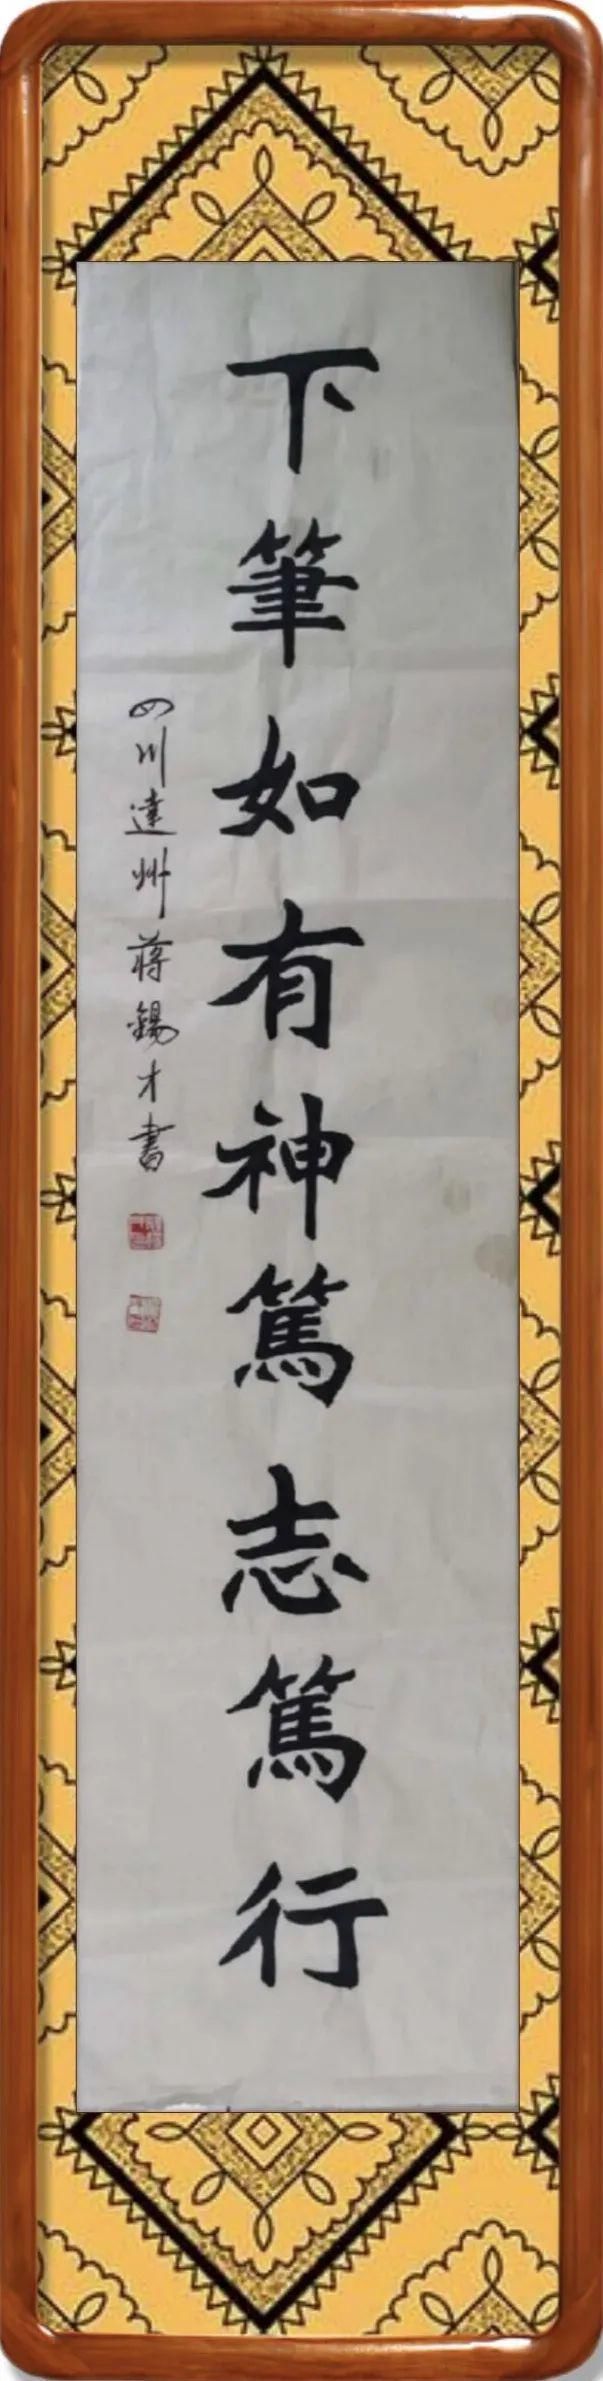 下筆如有神篤志篤行
四川達州蔣錫才書